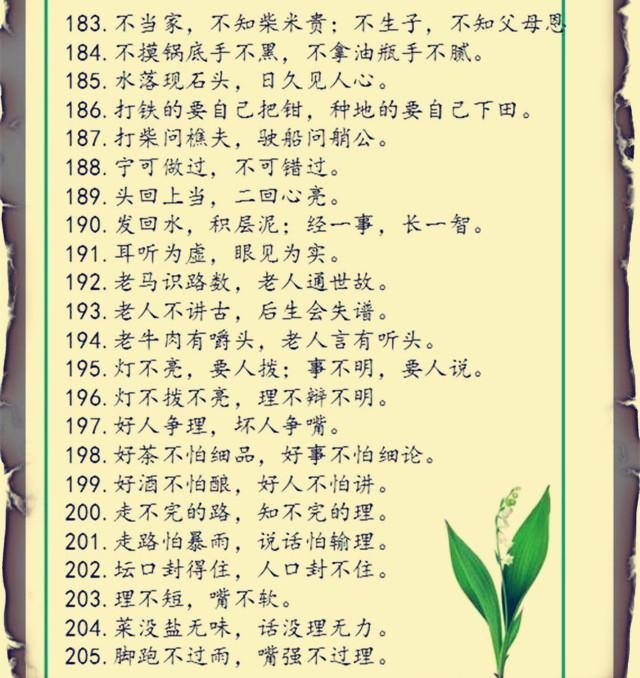 183. 不当家，不知柴米贵；不生子，不知父母恩
184. 不摸锅底手不黑，不拿油瓶手不腻。
185. 水落现石头，日久见人心。
186. 打铁的要自己把钳，种地的要自己下田。
187. 打柴问樵夫，驶船问艄公。
188. 宁可做过，不可错过。
189. 头回上当，二回心亮。
190. 发回水，积层泥；经一事，长一智。
191. 耳听为虚，眼见为实。
192. 老马识路数，老人通世故。
193. 老人不讲古，后生会失谱。
194. 老牛肉有嚼头，老人言有听头。
195. 灯不亮，要人拨；事不明，要人说。
196. 灯不拨不亮，理不辩不明。
197. 好人争理，坏人争嘴。
198. 好茶不怕细品，好事不怕细论。
199. 好酒不怕酿，好人不怕讲。
200. 走不完的路，知不完的理。
201. 走路怕暴雨，说话怕输理。
202. 坛口封得住，人口封不住。
203. 理不短，嘴不软。
204. 菜没盐无味，话没理无力。
205. 脚跑不过雨，嘴强不过理。